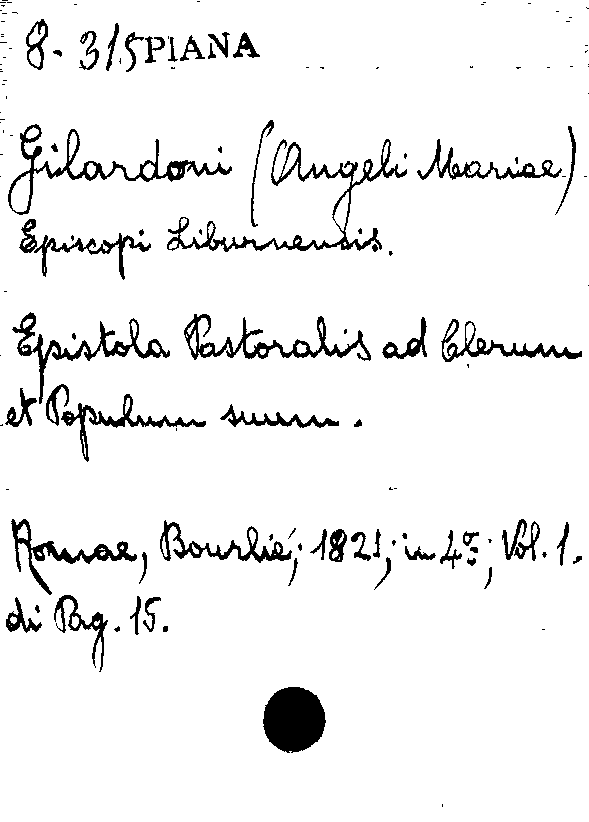 8. 315 PIANA
Gilardoni (Angeli Mariae)
Episcopi Liburnensis.
Epistola Pastoralis ad Clerum
et Populum suum.
Romae, Bourlié; 1821; in 4º; Vol. 1.
di Pag. 15.